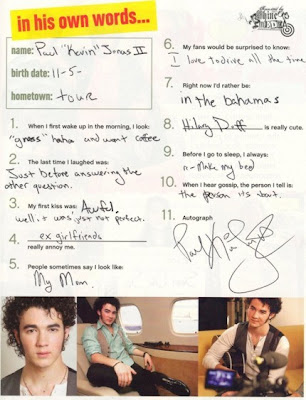 in his own words...
name: Paul "Kevin" Jonas II
birth date: 11-5-
hometown: tour
1. When I first wake up in the morning, I look:
"gross" haha and want coffee
2. The last time I laughed was:
Just before answering the
other question.
3. My first kiss was: Awful.
well, it was just not perfect.
4. ex girlfriends
really annoy me.
5. People sometimes say I look like:
My Mom.
6. My fans would be surprised to know:
I love to drive all the time
7. Right now I'd rather be:
in the bahamas
8. Hilary Duff is really cute.
9. Before I go to sleep, I always:
Make my bed
10. When I hear gossip, the person I tell is:
the person its about.
11. Autograph